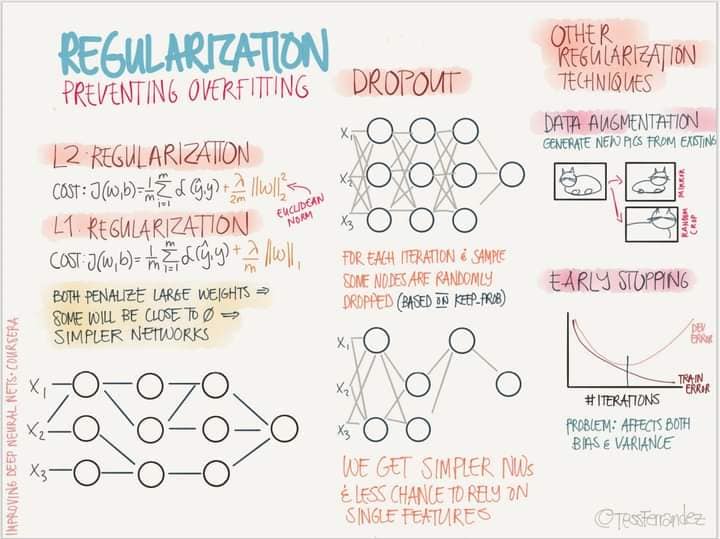 REGULARIZATION
PREVENTING OVERFITTING
L2·REGULARIZATION
COST: J(w,b)=1/m Σ_{i=1}^{m} L(ŷ,y) + λ/2m ||W||²
EUCLIDEAN
NORM
L1·REGULARIZATION
COST: J(w,b)= 1/m Σ_{i=1}^{m} L(ŷ,y) + λ/m ||W||₁
BOTH PENALIZE LARGE WEIGHTS ⇒
SOME WILL BE CLOSE TO Ø ⇒
SIMPLER NETWORKS
X₁
X₂
X₃
IMPROVING DEEP NEURAL NETS·COURSERA
DROPOUT
X₁
X₂
X₃
FOR EACH ITERATION & SAMPLE
SOME NODES ARE RANDOMLY
DROPPED (BASED ON KEEP-PROB)
X₁
X₂
X₃
WE GET SIMPLER NWs
& LESS CHANCE TO RELY ON
SINGLE FEATURES
OTHER
REGULARIZATION
TECHNIQUES
DATA AUGMENTATION
GENERATE NEW PICS FROM EXISTING
MIRROR
RANDOM
CROP
EARLY STOPPING
DEV
ERROR
TRAIN
ERROR
# ITERATIONS
PROBLEM: AFFECTS BOTH
BIAS & VARIANCE
©TessFerrandez